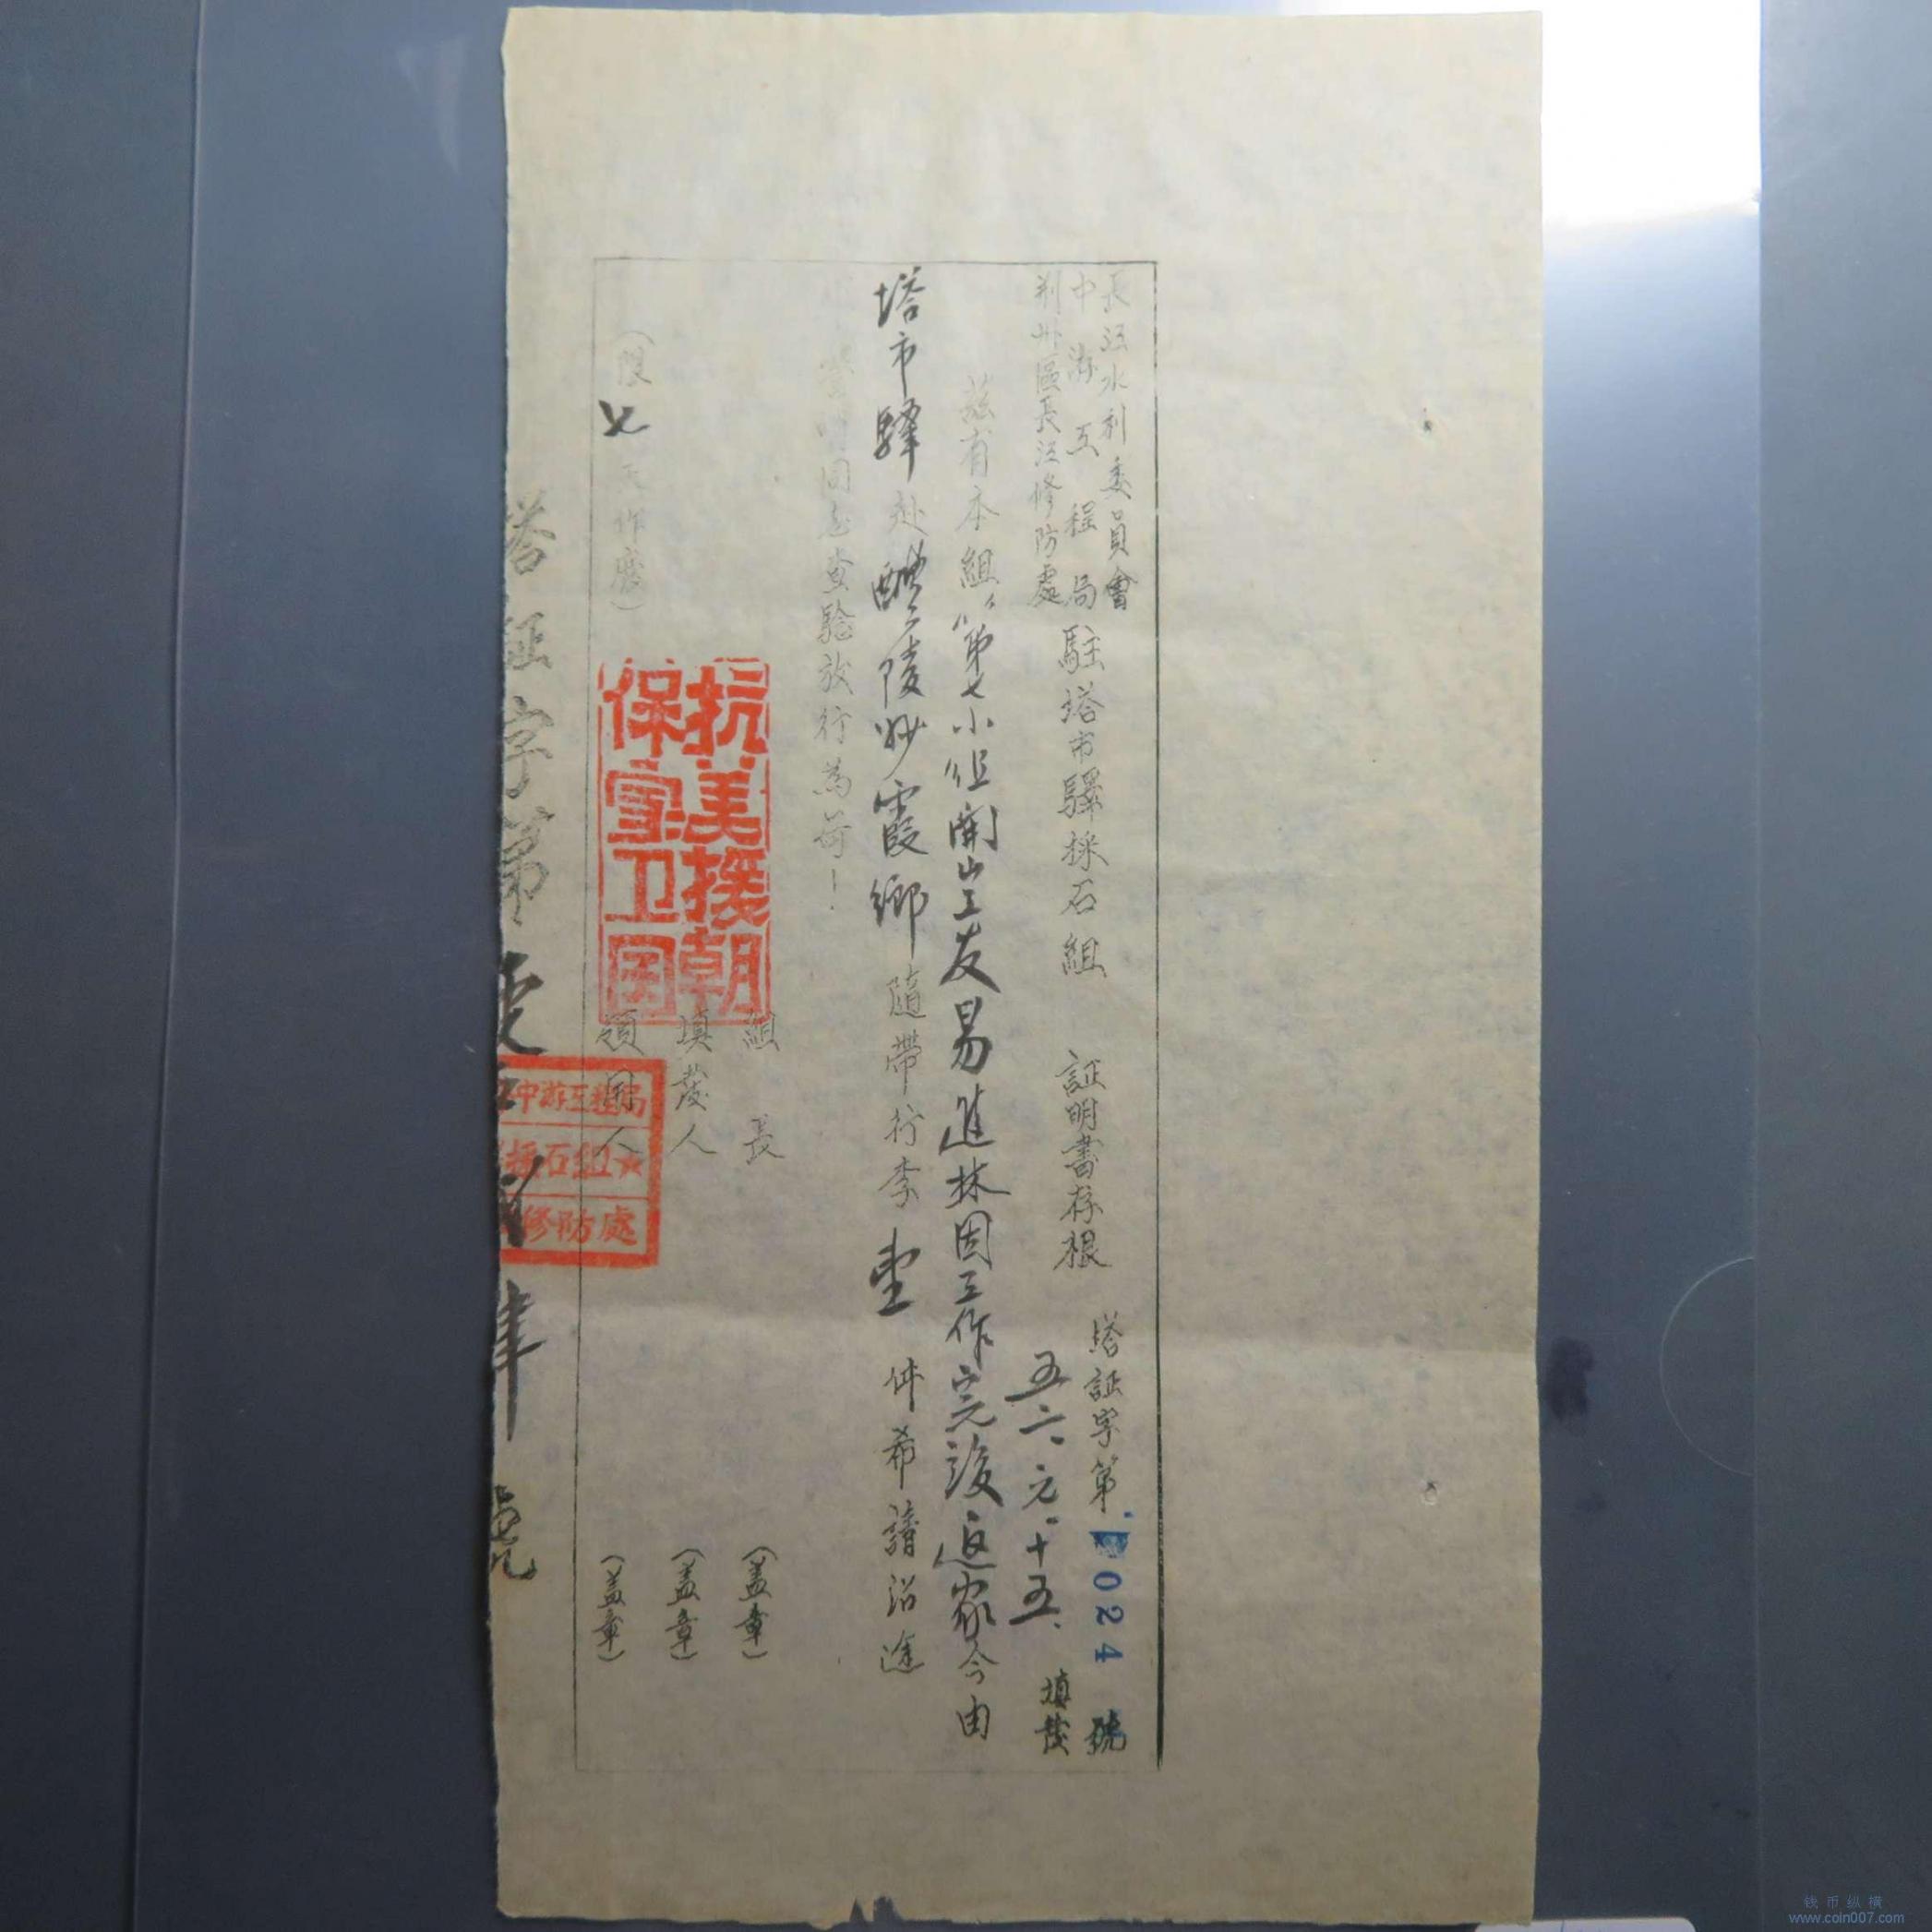 長江水利委員會
中游工程局
荆州區長江修防處
駐塔市驛採石組 証明書存根
塔証字第 024 號
五六、元、十五、填發
茲有本組第七小组開山工友易進林因工作完後返家今由
塔市驛赴醴陵妙霞鄉隨帶行李壹件希請沿途
同志查驗放行為荷！
組長 （盖章）
填發人 （盖章）
領用人 （盖章）
（限七天作廢）
抗美援朝
保家卫国
中游工程局
採石組★
修防處
塔証字第 肆號
钱币纵横
www.coin007.com